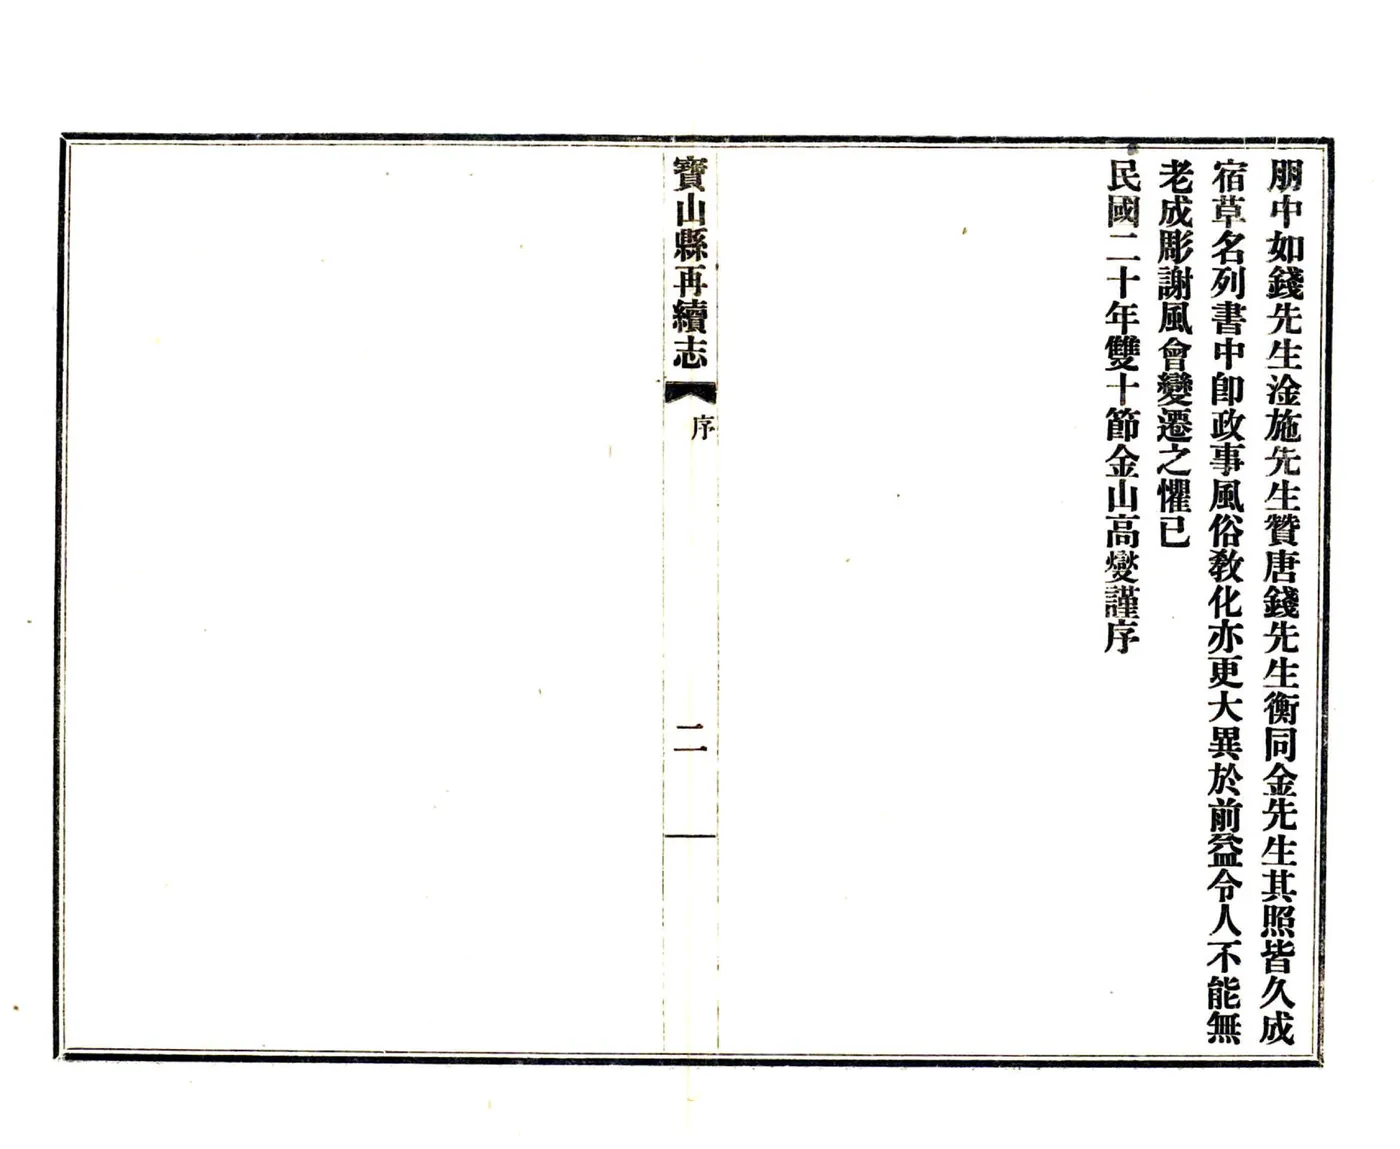 朋中如錢先生淦施先生贊唐錢先生衡同金先生其照皆久成
宿草名列書中卽政事風俗教化亦更大異於前益令人不能無
老成彫謝風會變遷之懼已
民國二十年雙十節金山高燮謹序
寶山縣再續志
序
二